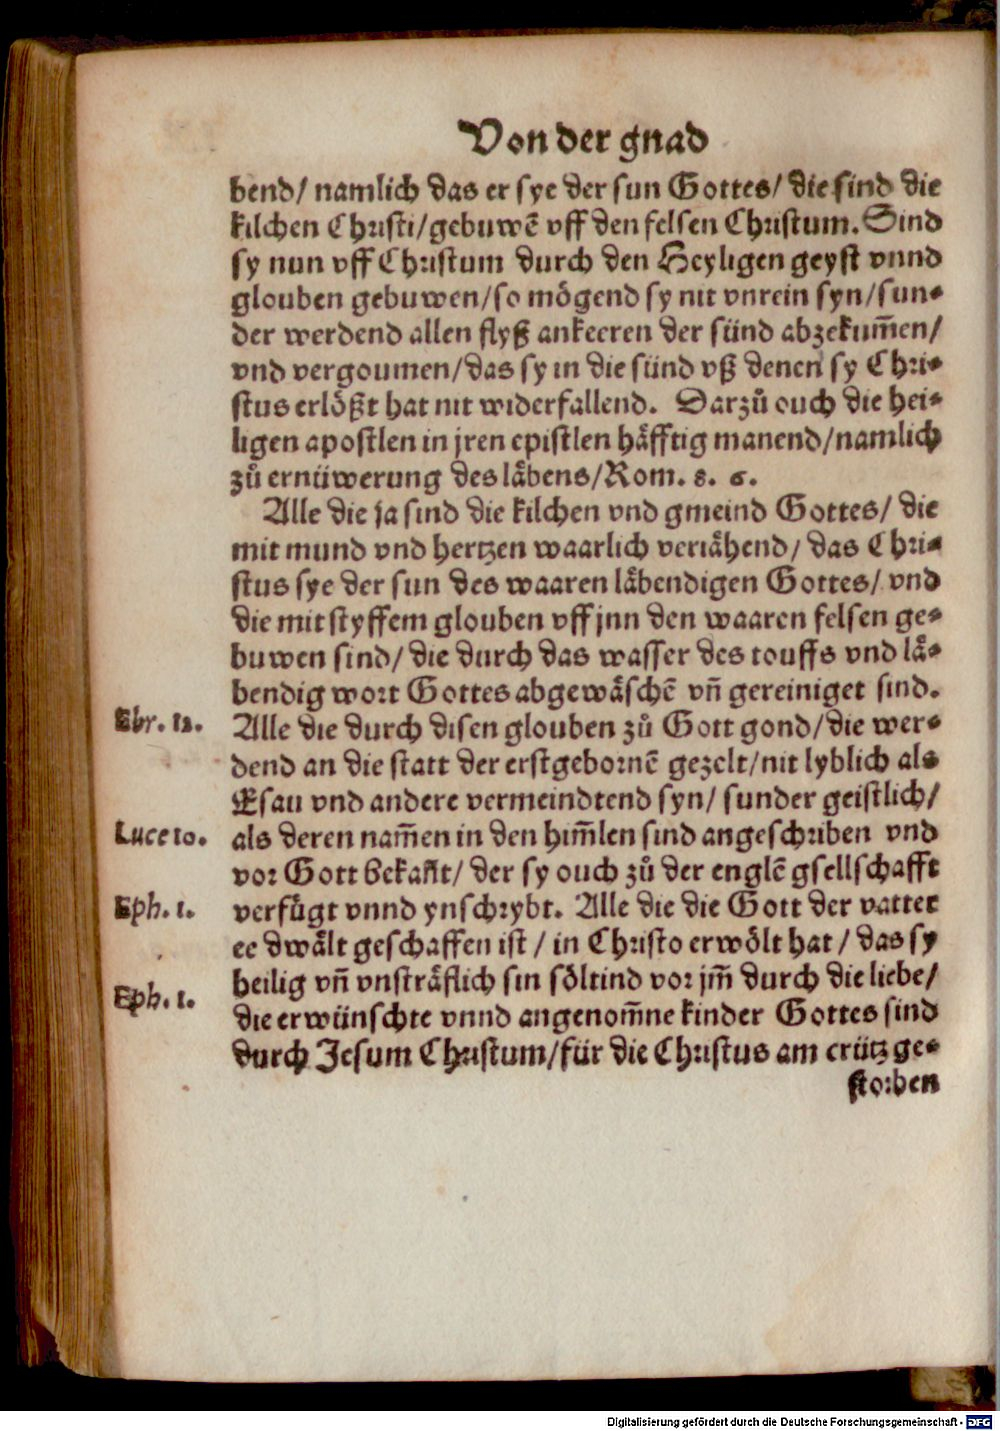 Von der gnad
bend/ namlich das er sye der sun Gottes/ die sind die
kilchen Christi/gebuwē vff den felsen Christum. Sind
sy nun vff Christum durch den Heyligen geyst vnnd
glouben gebuwen/so mögend sy nit vnrein syn/sun-
der werdend allen flyß ankeeren der sünd abzekum̄en/
vnd vergoumen/das sy in die sünd vß denen sy Chri-
stus erlößt hat nit widerfallend. Darzů ouch die hei-
ligen apostlen in jren epistlen häfftig manend/namlich
zů ernüwerung des läbens/Rom. 8. 6.
Alle die ja sind die kilchen vnd gmeind Gottes/ die
mit mund vnd hertzen waarlich veriähend/ das Chri-
stus sye der sun des waaren läbendigen Gottes/ vnd
die mit styffem glouben vff jnn den waaren felsen ge-
buwen sind/ die durch das wasser des touffs vnd lä-
bendig wort Gottes abgewäschē vn̄ gereiniget sind.
Ebr. 12. Alle die durch disen glouben zů Gott gond/die wer-
dend an die statt der erstgebornē gezelt/nit lyblich als
Esau vnd andere vermeindtend syn/ sunder geistlich/
Luce 10. als deren nam̄en in den him̄len sind angeschriben vnd
vor Gott bekan̄t/ der sy ouch zů der englē gsellschafft
Eph. 1. verfügt vnnd ynschrybt. Alle die die Gott der vatter
ee dwält geschaffen ist / in Christo erwölt hat / das sy
heilig vn̄ vnsträflich sin söltind vor jm̄ durch die liebe/
Eph. 1. die erwünschte vnnd angenom̄ne kinder Gottes sind
durch Jesum Christum/für die Christus am crütz ge-
storben
Digitalisierung gefördert durch die Deutsche Forschungsgemeinschaft - DFG